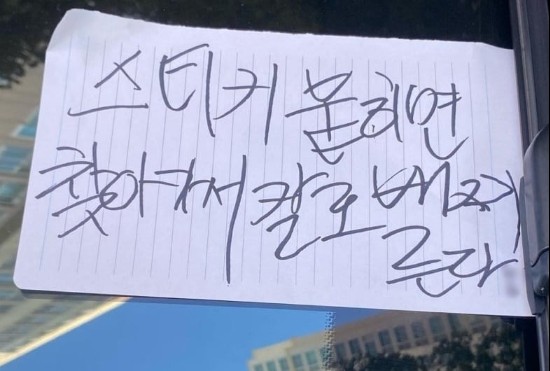 스티커 붙히면
찾아가서 칼로 배찌
른다